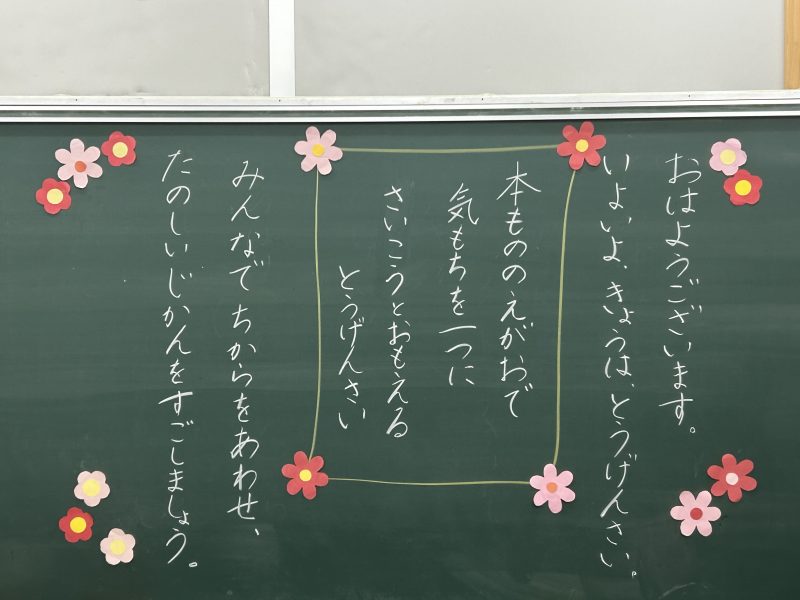 おはようございます。
いよいよ、きょうは、とうげんさい。
本もののえがおで
気もちを一つに
さいこうとおもえる
とうげんさい
みんなで ちからをあわせ、
たのしいじかんをすごしましょう。